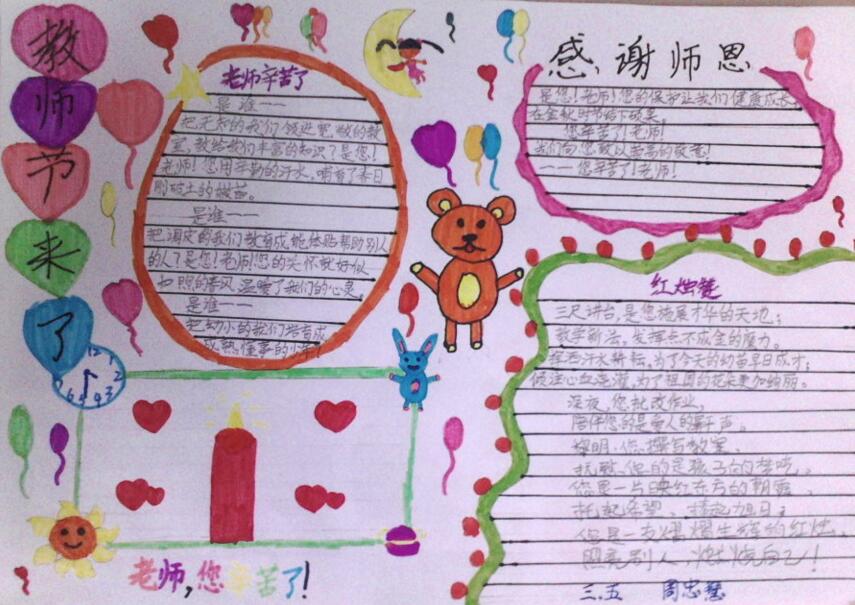 教师节来了
老师辛苦了
是谁——
把无知的我们领进宽敞的教
室,教给我们丰富的知识?是您!
老师!您用辛勤的汗水,哺育了春日
刚破土的嫩苗。
是谁——
把调皮的我们教育成能体贴帮助别人
的人?是您!老师!您的关怀就好似
和煦的春风,温暖了我们的心灵。
是谁——
把幼小的我们培育成
成熟懂事的少年!
12
1
2
3
4
6
老师,您辛苦了!
感谢师恩
是您!老师!您的保护让我们健康成长。
在金秋时节结下硕果。
您辛苦了!老师!
我们向您致以崇高的敬意!
——您辛苦了!老师!
红烛赞
三尺讲台,是您施展才华的天地;
教学新法,发挥点石成金的魔力。
挥洒汗水耕耘,为了今天的幼苗早日成才;
倾注心血浇灌,为了祖国的花朵更加绚丽。
深夜,您批改作业,
陪伴您的是爱人的鼾声。
黎明,您撰写教案,
抚慰您的是孩子的梦呓。
您是一片映红东方的朝霞,
托起希望,捧起旭日;
您是一支熠熠生辉的红烛,
照亮别人,燃烧自己!
三.五 周忠慧